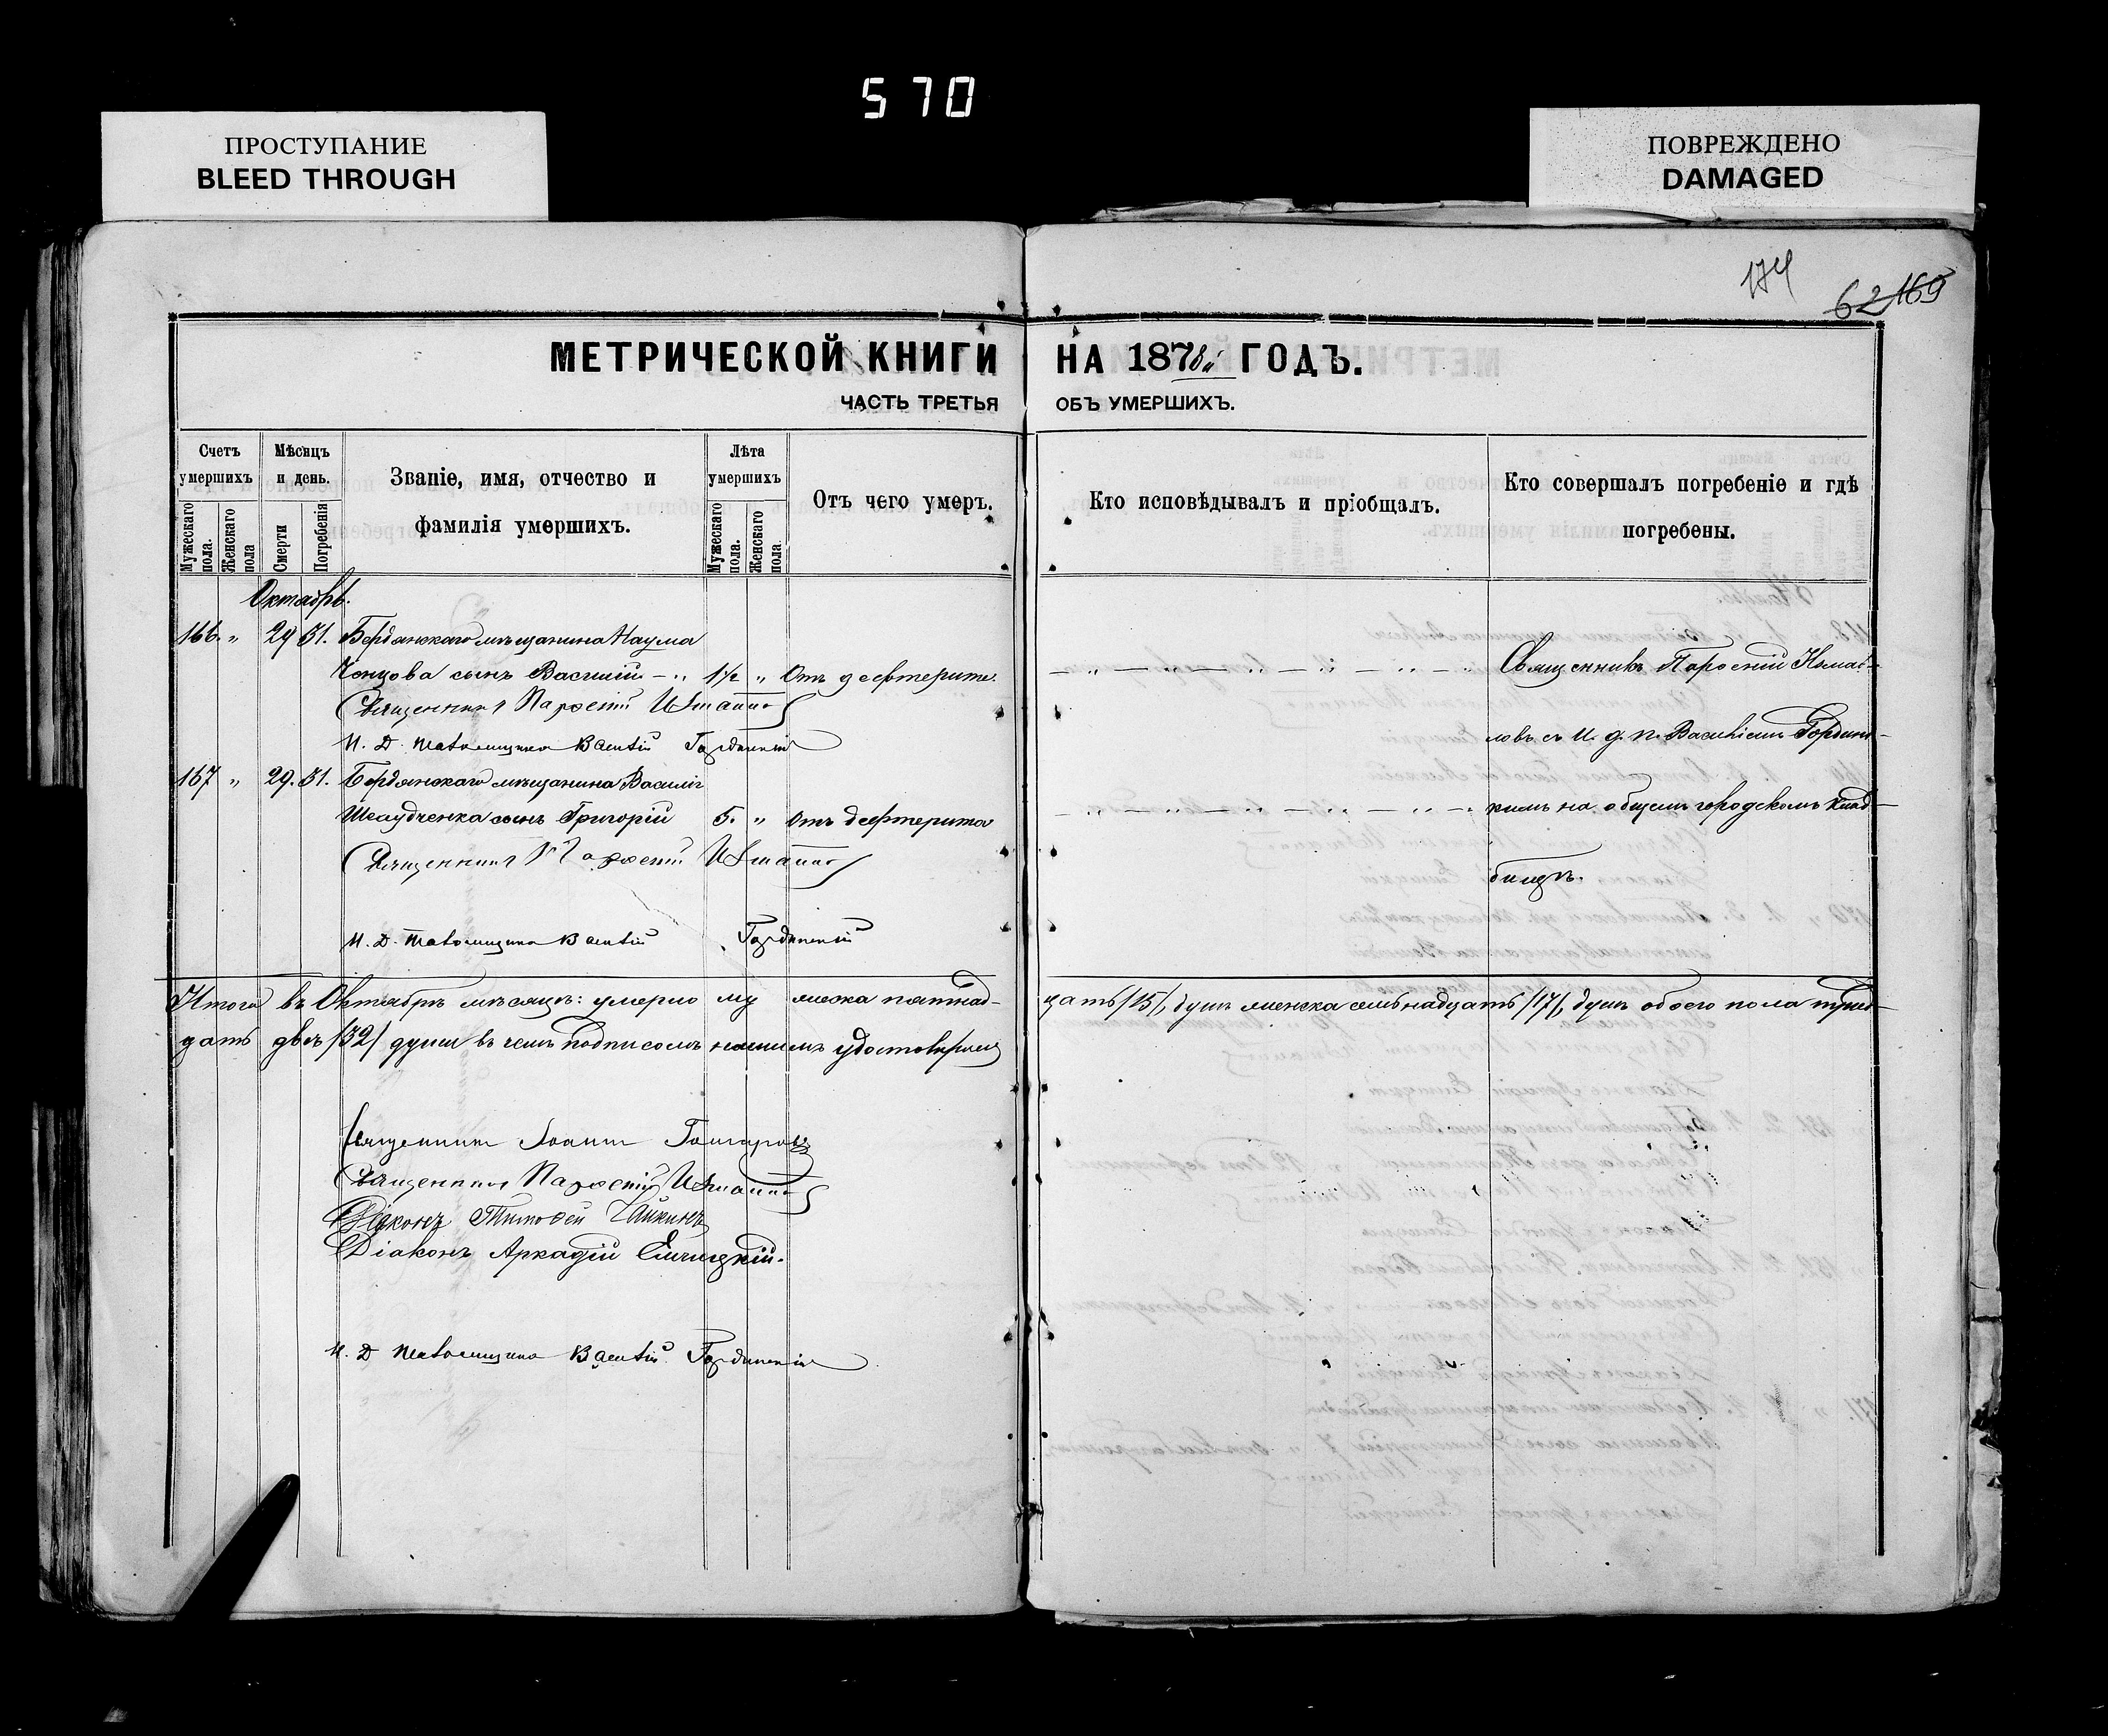 570
ПРОСТУПАНИЕ
BLEED THROUGH
ПОВРЕЖДЕНО
DAMAGED
174
62 169
МЕТРИЧЕСКОЙ КНИГИ НА 1878й ГОДЪ.
ЧАСТЬ ТРЕТЬЯ ОБЪ УМЕРШИХЪ.
Счетъ умершихъ
Мужескаго пола.
Женскаго пола
Мѣсяцъ и день.
Смерти
Погребенія
Званіе, имя, отчество и фамилія умершихъ.
Лѣта умершихъ
Мужескаго пола.
Женскаго пола.
Отъ чего умеръ.
Кто исповѣдывалъ и пріобщалъ.
Кто совершалъ погребеніе и гдѣ погребены.
Октябрь.
166. " 29 31. Бердянскаго мѣщанина Наума
сынъ Василій 1½ " Отъ дефтерита Священникъ
Священникъ
И. Д. Псаломщика Василій Гординскій
ловъ съ И. д. п. Василіемъ Гординс-
167 " 29. 31. Бердянскаго мѣщанина Василія
сынъ Григорій 5. " Отъ дефтерита
кимъ на общемъ городскомъ клад-
Священникъ
бищѣ.
И. Д. Псаломщика Василій Гординскій
Итого въ Октябрѣ мѣсяцѣ: умерло мужеска пятнад- цать /15/, душъ женска семьнадцать /17/, душъ обоего пола трид-
цать двѣ /32/ души въ чемъ подписомъ нашимъ удостовѣряемъ
Священникъ Іоаннъ
Священникъ
Діаконъ Тимофей
Діаконъ Аркадій
И. Д. Псаломщика Василій Гординскій